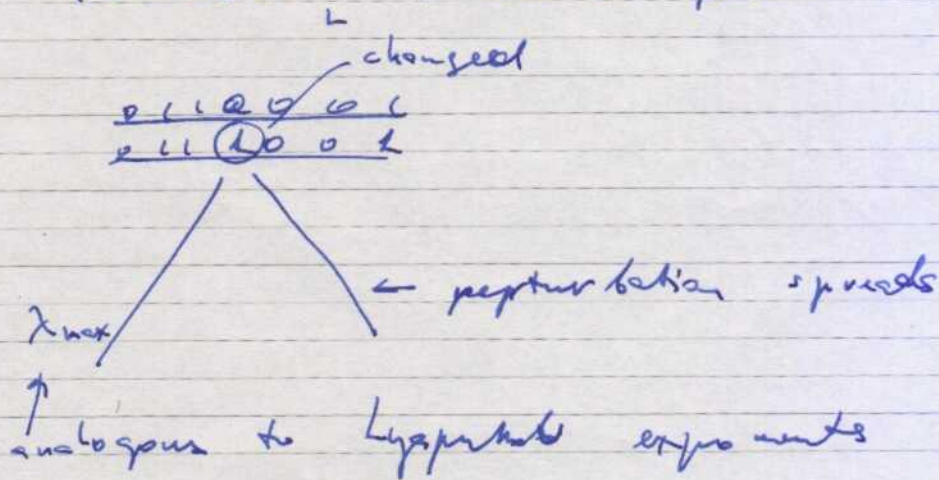 changed
0 1 1 0 0 0 1
0 1 1 1 0 0 1
← perturbation spreads
λmax
↑
analogous to Lyapunov exponents